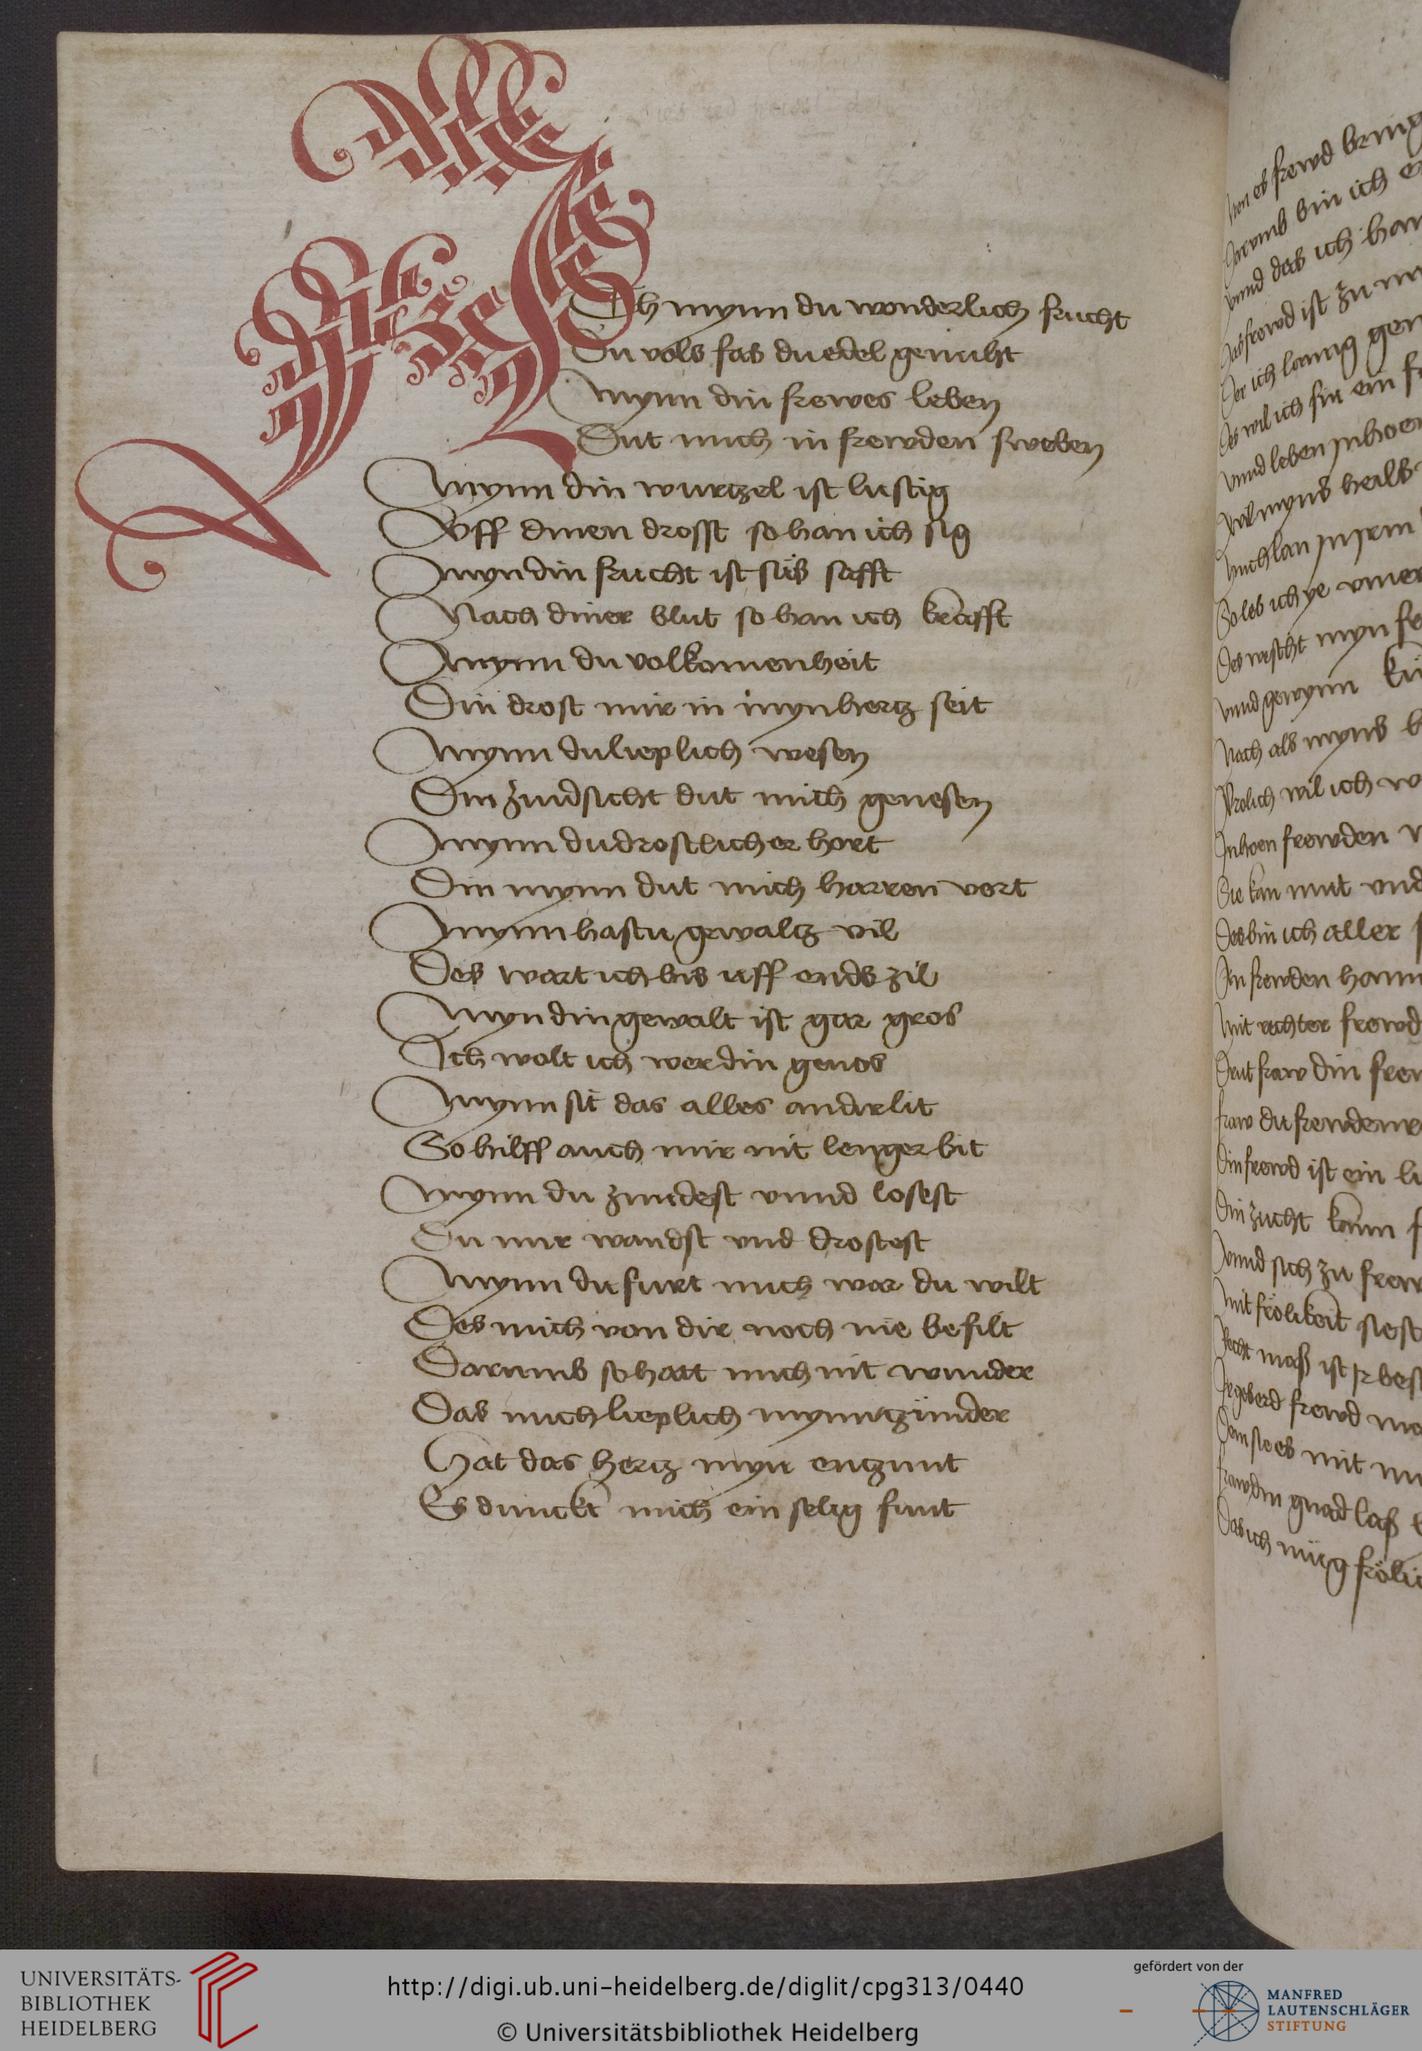 Ach mynn du wonderlich frucht
Du vols fas du edel genuht
Mynn din frewes leben
Dut mich in frewden sweben
Mynn din wurtzel ist lustig
Vff dinen drosst so han ich sig
Myn din frucht ist süs safft
Nach diner blut so han ich krafft
Mynn du volkomenheit
Din drost mir in mynhertz seit
Mynn du lieplich wesen
Din zuvdsicht dut mich genesen
Mynn du drostlicher hort
Din mynn dut mich harren vort
Mynn hastu gewaltz vil
Des wart ich bis uff ends zil
Myn din gewalt ist gar gros
Ich wolt ich wer din genos
Mynn sit das alles an dir lit
So hilff auch mir nit lenger bit
Mynn du zundest vnnd losest
Du mir wandst vnd drostest
Mynn du furt mich war du wilt
Des mich von dir noch nie befilt
Darumb so hatt mich nit wunder
Das mich lieplich mynn tzunder
Hat das hertz myn entzunt
Es dunckt mich ein selig funt
es frewd bring
bin ich
vnnd das ich han
Das frewd ist zu
Der ich lanng gen
Des wil ich sin ein
vnnd leben Inhoen
myns heils
So leb ich ye vmer
Des wscht myn
vnnd gewynn
Nach als myns
Frolich wil ich
Inhoen frewden
Sie kan mut vnd
Des bin ich aller
In frewden hann
Mit rechter frewd
Drut fraw din frew
fraw du frewdenn
Din frewd ist ein
Din zucht kann
vnnd sich zu frew
Mit frölikeit siest
Recht mass ist Ir best
Ir geberd frewd
Den sie es mit
frawdin gnad lass
Das ich müg fröli
UNIVERSITÄTS-
BIBLIOTHEK
HEIDELBERG
http://digi.ub.uni-heidelberg.de/diglit/cpg313/0440
© Universitätsbibliothek Heidelberg
gefördert von der
MANFRED
LAUTENSCHLÄGER
STIFTUNG